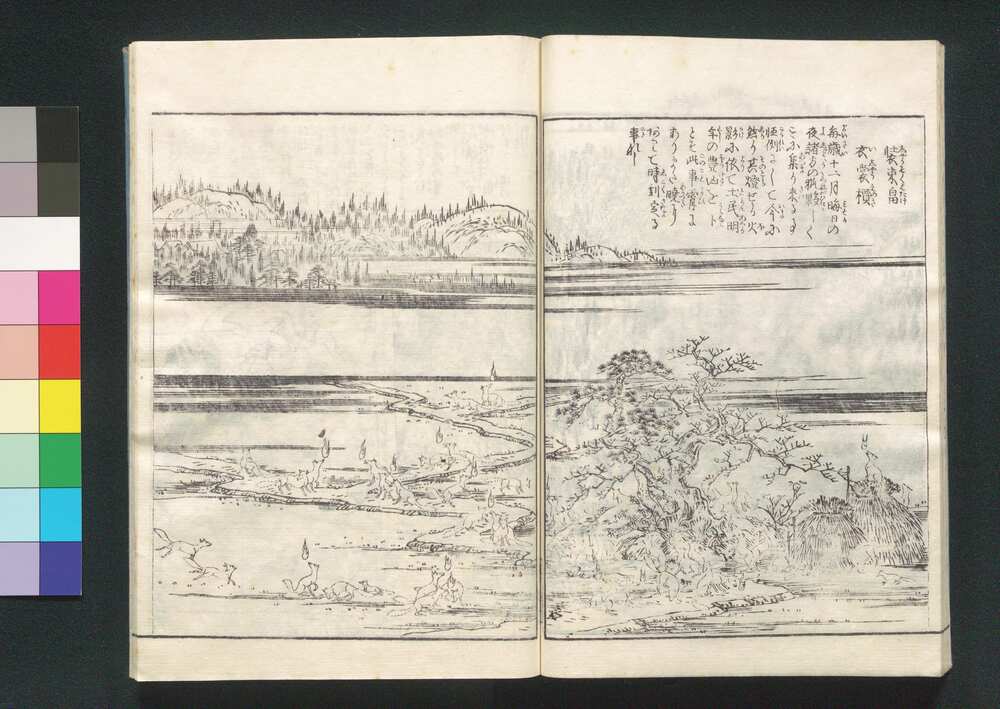 裝束畠
衣裳榎
毎歳十二月晦日の
夜諸方の狐夥しく
こゝに集り来る事
恒例にして今に
然り其燈せる火
影に依て土民明
年の豊凶を卜
とぞ此事宵に
あり 暁に
ありて時刻定る
事なし